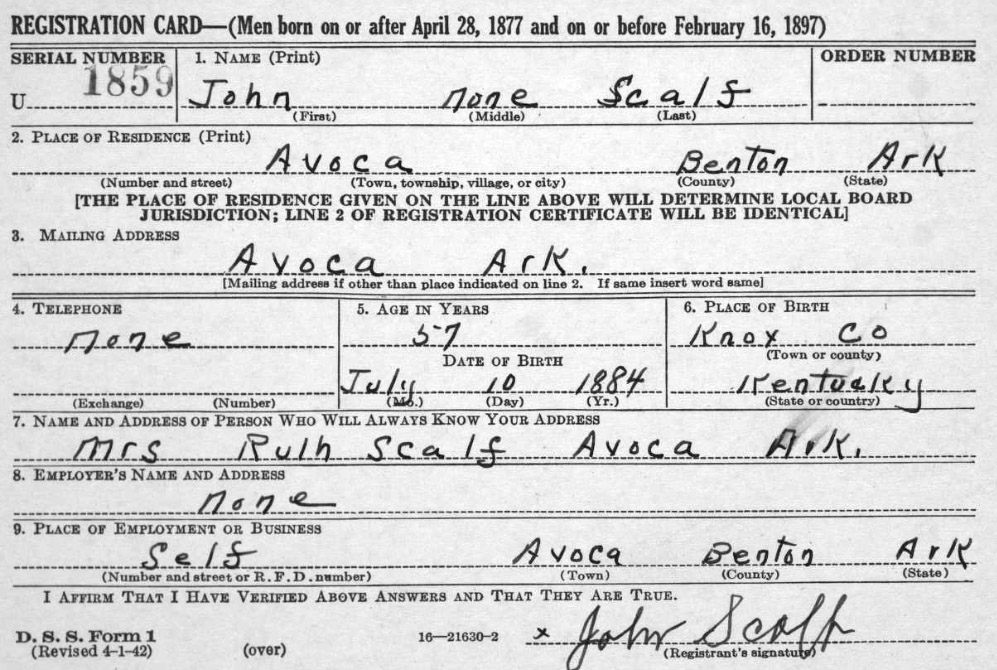 REGISTRATION CARD—(Men born on or after April 28, 1877 and on or before February 16, 1897)
SERIAL NUMBER 1. NAME (Print) ORDER NUMBER
U 1859 John none Scalf
(First) (Middle) (Last)
2. PLACE OF RESIDENCE (Print)
Avoca Benton Ark
(Number and street) (Town, township, village, or city) (County) (State)
[THE PLACE OF RESIDENCE GIVEN ON THE LINE ABOVE WILL DETERMINE LOCAL BOARD
JURISDICTION; LINE 2 OF REGISTRATION CERTIFICATE WILL BE IDENTICAL]
3. MAILING ADDRESS
Avoca Ark.
[Mailing address if other than place indicated on line 2. If same insert word same]
4. TELEPHONE 5. AGE IN YEARS 6. PLACE OF BIRTH
none 57 Knox Co
DATE OF BIRTH (Town or county)
July 10 1884 Kentucky
(Exchange) (Number) (Mo.) (Day) (Yr.) (State or country)
7. NAME AND ADDRESS OF PERSON WHO WILL ALWAYS KNOW YOUR ADDRESS
Mrs Ruth Scalf Avoca Ark.
8. EMPLOYER'S NAME AND ADDRESS
none
9. PLACE OF EMPLOYMENT OR BUSINESS
Self Avoca Benton Ark
(Number and street or R. F. D. number) (Town) (County) (State)
I AFFIRM THAT I HAVE VERIFIED ABOVE ANSWERS AND THAT THEY ARE TRUE.
D. S. S. Form 1 16—21630-2 x John Scalf
(Revised 4-1-42) (over) (Registrant's signature)